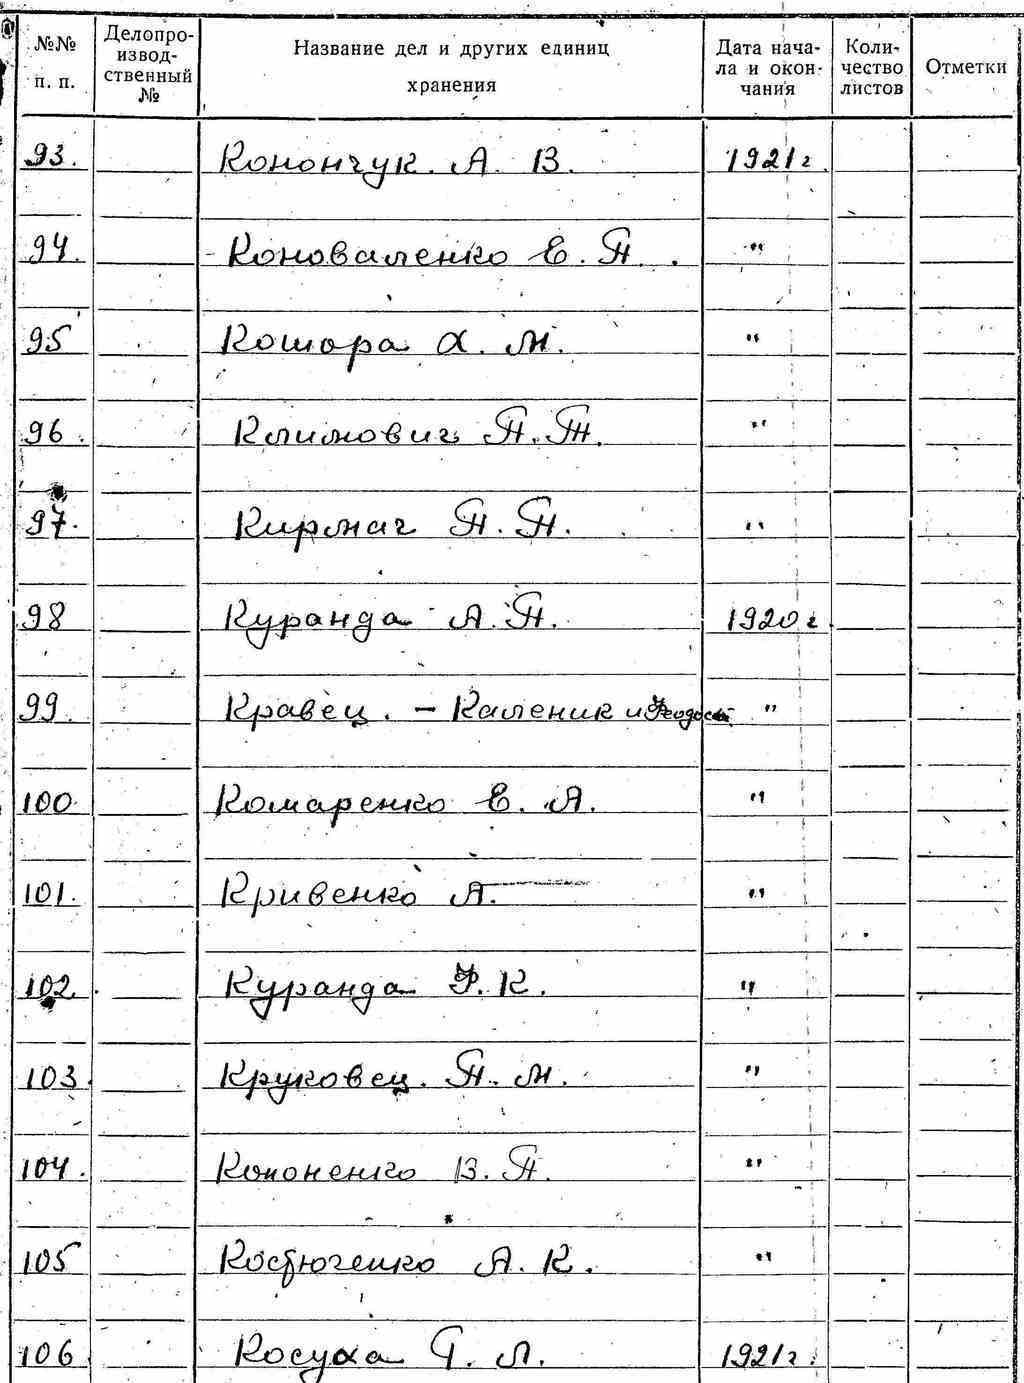 №№ п. п. Делопроизводственный № Название дел и других единиц хранения Дата начала и окончания Количество листов Отметки
93. Конончук. А. В. 1921 г.
94. Коноваленко Е. П. "
95 Кошара Х. М. "
96. Климович П. П. "
97. Кирмач П. П. "
98 Куранда А. П. 1920 г
99. Кравец. - Каленик и Феодосий "
100 Комаренко Е. А. "
101. Кривенко А. "
102. Куранда Ф. К. "
103. Круковец. П. М. "
104. Кононенко В. П. "
105 Костюченко А. К. "
106 Косуха Г. Л. 1921 г.